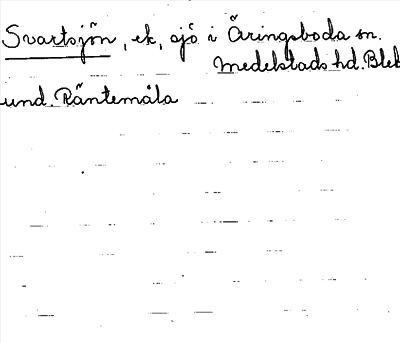 Svartsjön, ek, sjö i Äringsboda sn.
Medelstads hd. Blek
und. Räntemåla